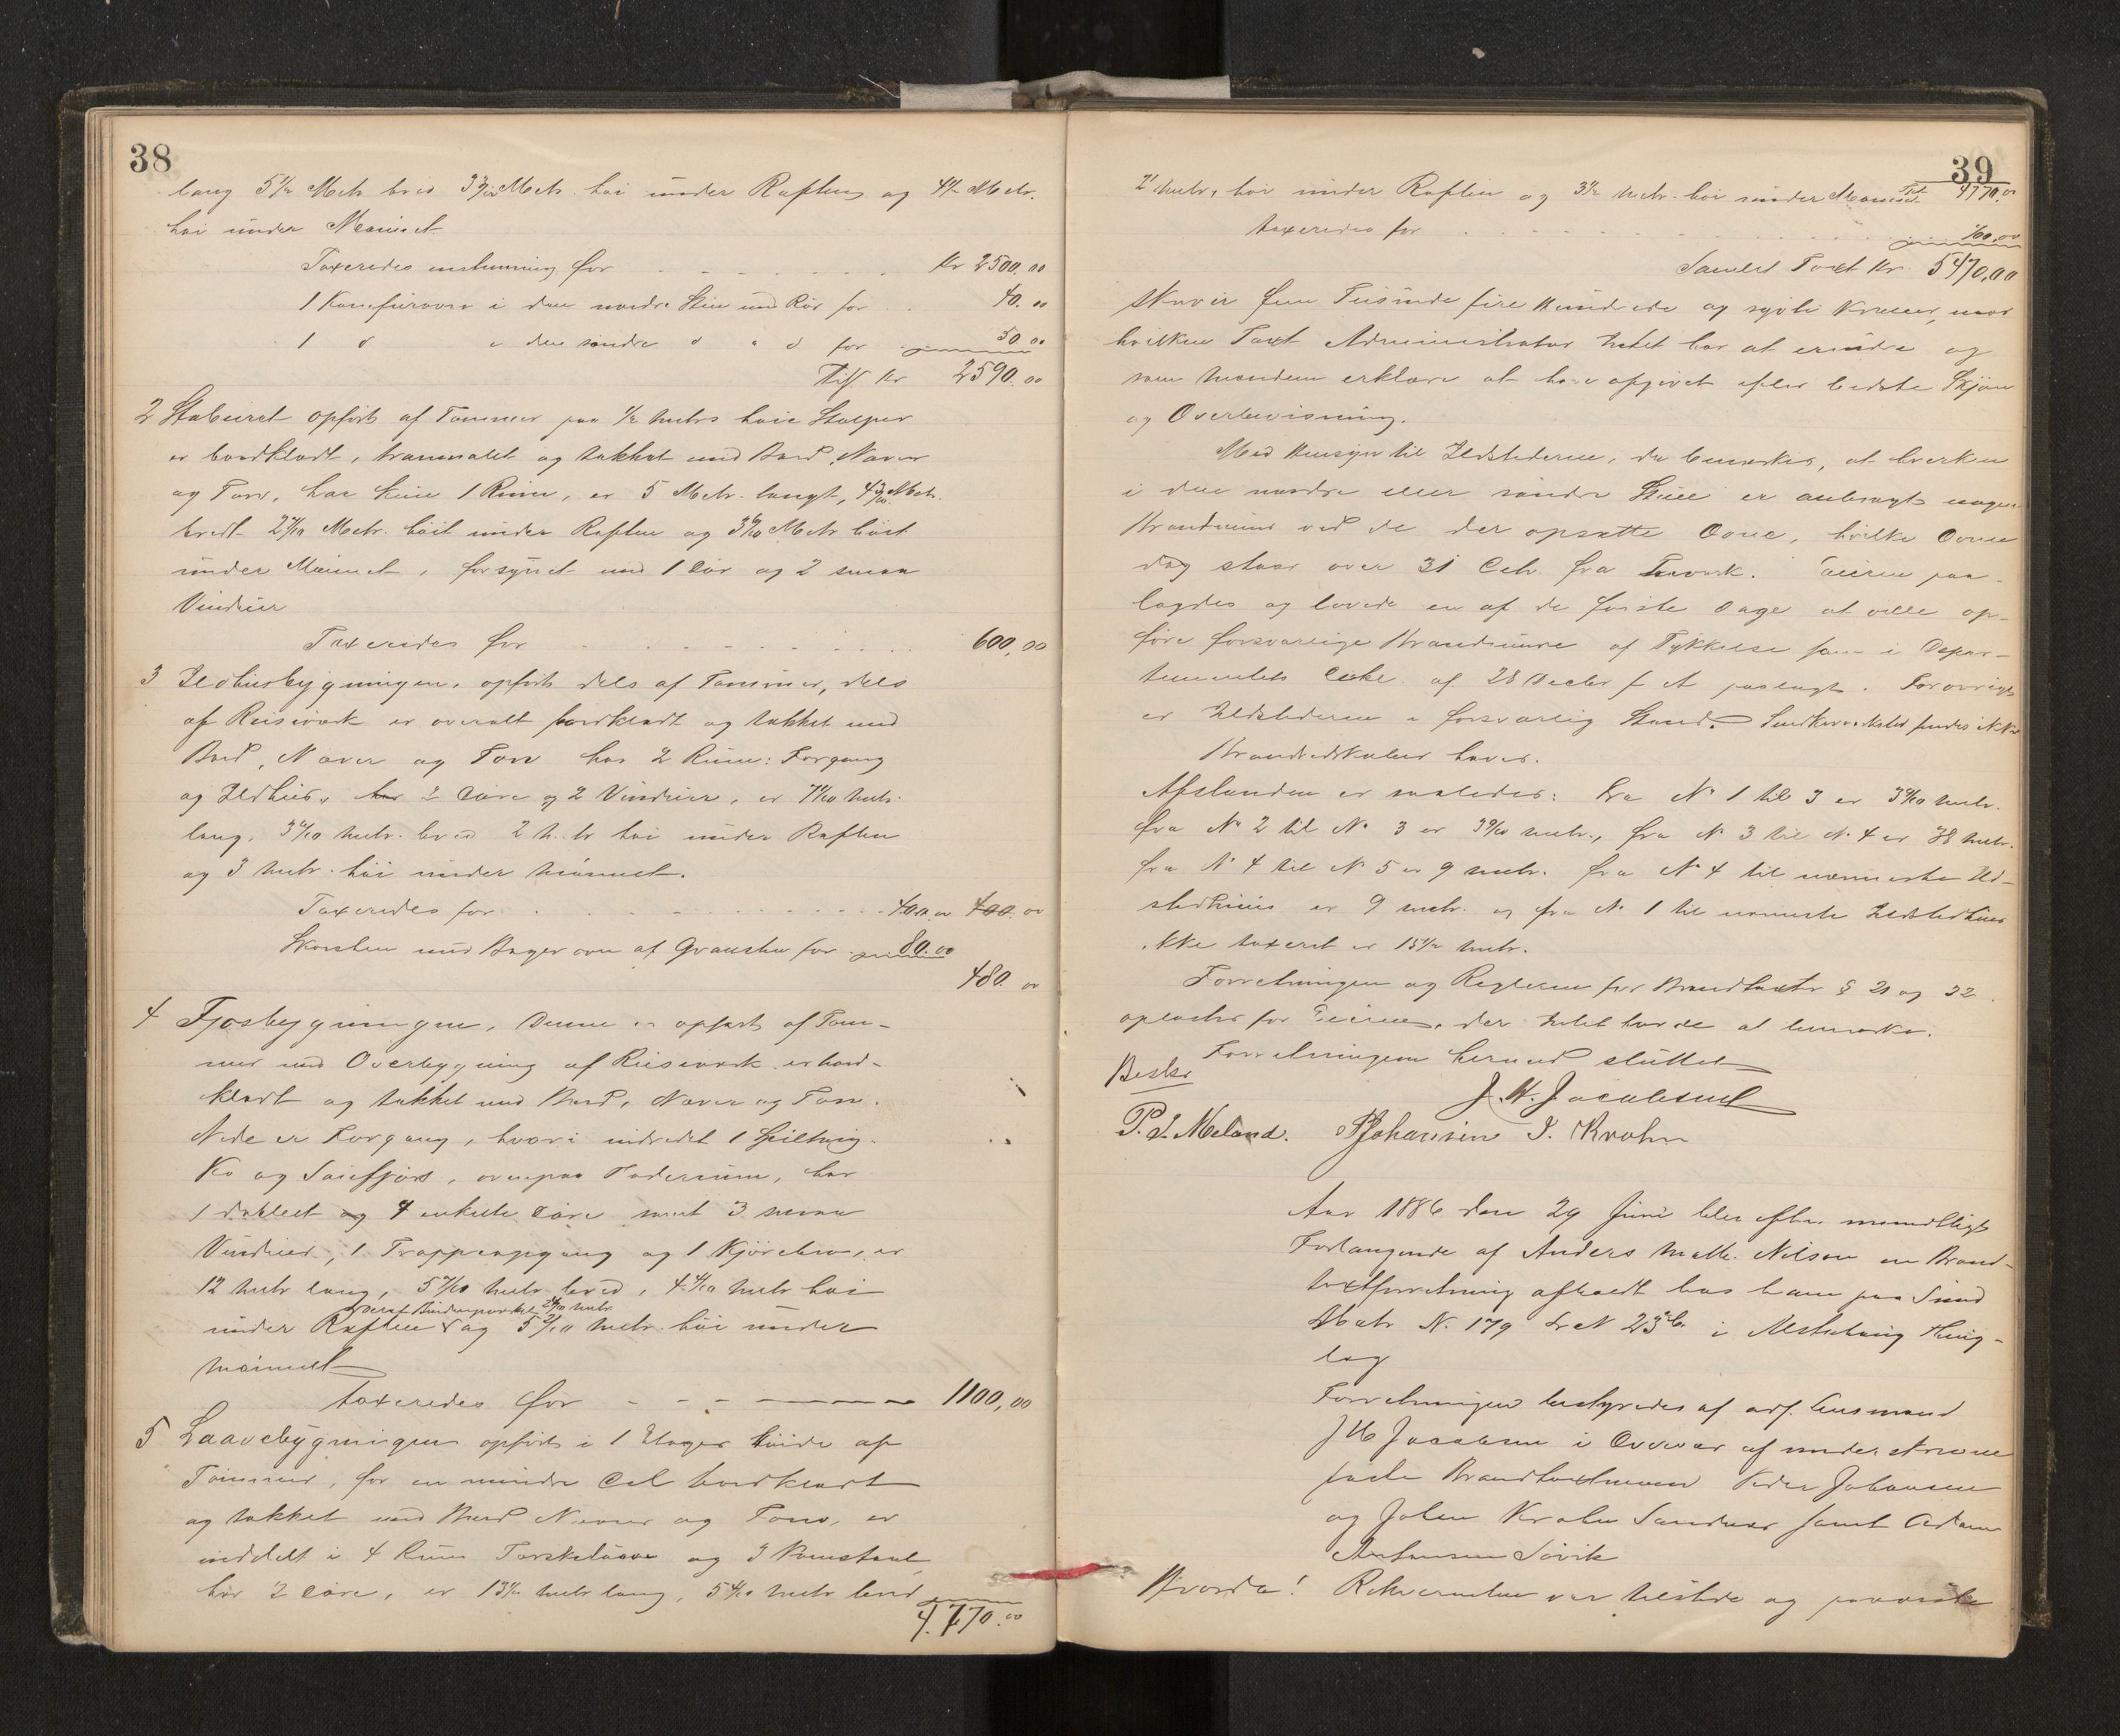 38
lang 5 1/2 Metr bred 3 3/10 Metr. høi under Raften og 4 1/2 Metr.
høi under Mønnet
Taxeredes enstemmig for Kr 2500.00
1 Kaminovn i den nordre Stue med Rør for 40.00
1 d i den søndre d " d for 50.00
Tils. Kr 2590.00
2 Stabburet opført af Tømmer paa 1/2 Metrs høie Stolper
er bordklædt, tranmalet og tækket med Bord, Næver
og Torv, har kun 1 Rum, er 5 Metr. langt, Metr.
bredt Metr. høit under Raften og 3 Metr høit
under Mønnet, forsynet med 1 Dør og 2 smaa
Vinduer
Taxeredes for 600,00
3 Ildhusbygningen, opført dels af Tømmer, dels
af Reisværk er overalt bordklædt og tækket med
Bord, Næver og Torv har 2 Rum: Forgang
og Ildhus, har 2 Døre og 2 Vinduer, er 7 Metr.
lang, Metr. bred 2 Metr høi under Raften
og 3 Metr. høi under Mønnet.
Taxeredes for 400.00 400.00
Skorsten med Bagerovn af Graasten for 80.00
480.00
4 Fjøsbygningen, Denne er opført af Tøm-
mer med Overbygning af Reisværk er bord-
klædt og tækket med Bord, Næver og Torv.
Nede er Forgang, hvori indredet 1 Spiltoug.
Ko og Sauefjøs, ovenpaa Foderrum, har
1 dobbelt og 4 enkelte Døre samt 3 smaa
Vinduer, 1 Trappeopgang og 1 Kjørebro, er
12 Metr lang, 5 Metr bred, 4 Metr høi
deraf 2 Metr.
under Raften og 5 Metr. høi under
Mønnet
taxeredes for 1100,00
5 Laavebygningen opført i 1 Etages Høide af
Tømmer, for en mindre Del bordklædt
og tækket med Bord Næver og Torv, er
inddelt i 4 Rum Tærskelaave og 3 Kornstaal,
har 2 Døre, er 13 1/2 Metr lang, 5 Metr bred
4.770.00
39
Trt. 4770.00
2 Metr, høi under Raften og 3 1/2 Metr. høi under Mønnet.
taxeredes for 00,00
Samlet Taxt Kr. 5470,00
skriver fem Tusinde fire Hundrede og sytti Kroner, mod
hvilken Taxt Administrator Intet har at erindre og
som Mændene erklære at have afgivet efter bedste Skjøn
og Overbevisning.
Med Hensyn til Ildstederne, da bemærkes, at hverken
i den nordre eller søndre Stue er anbragt nogen
Brandmure ved de der opsatte Ovne, hvilke Ovne
dog staar over 31 Ctm. fra Træværk. Eieren paa-
lagdes og lovede en af de første Dage at ville op-
føre forsvarlige Brandmure af Tykkelse som i Depar-
tementets Cirkl. af 28 Decbr f A paalagt. Forøvrigt
er Ildstederne i forsvarlig Stand. Snedkerværksted findes ikke
Brandredskaber haves.
Afstanden er saaledes: fra No 1 til 3 er 3 Metr.
fra No 2 til No 3 er 3 Metr., fra No 3 til No 4 er 38 Metr.
fra No 4 til No 5 er 9 Metr. fra No 4 til nærmeste Ild-
stedhuus er 9 Metr. og fra No 1 til nærmeste Ildstedhuus
ikke taxeret er 15 1/2 Metr.
Forretningen og Reglerne for Brandtaxter § 21 og 32
oplæstes for Eieren, der Intet havde at bemærke.
Forretningen hermed sluttet
J. H. Jacobsen
Beskr
P. J. Meland. P Johansen J. Krohn
Aar 1886 den 29 Juni blev efter mundtligt
Forlangende af Anders Math. Nilsen en Brand-
taxtforretning afholdt hos ham paa Sund
Matr No. 179 Lr N 23 i Alstahaug Thing-
lag
Forretningen bestyredes af const. Lensmand
J H Jacobsen i Overvær af underskrevne
faste Brandtaxtmænd Peder Johansen
og Johan Krohn Sandnes samt Adam
Antonsen Søvik
Hvorda! Rekvirenten var tilstede og paaviste